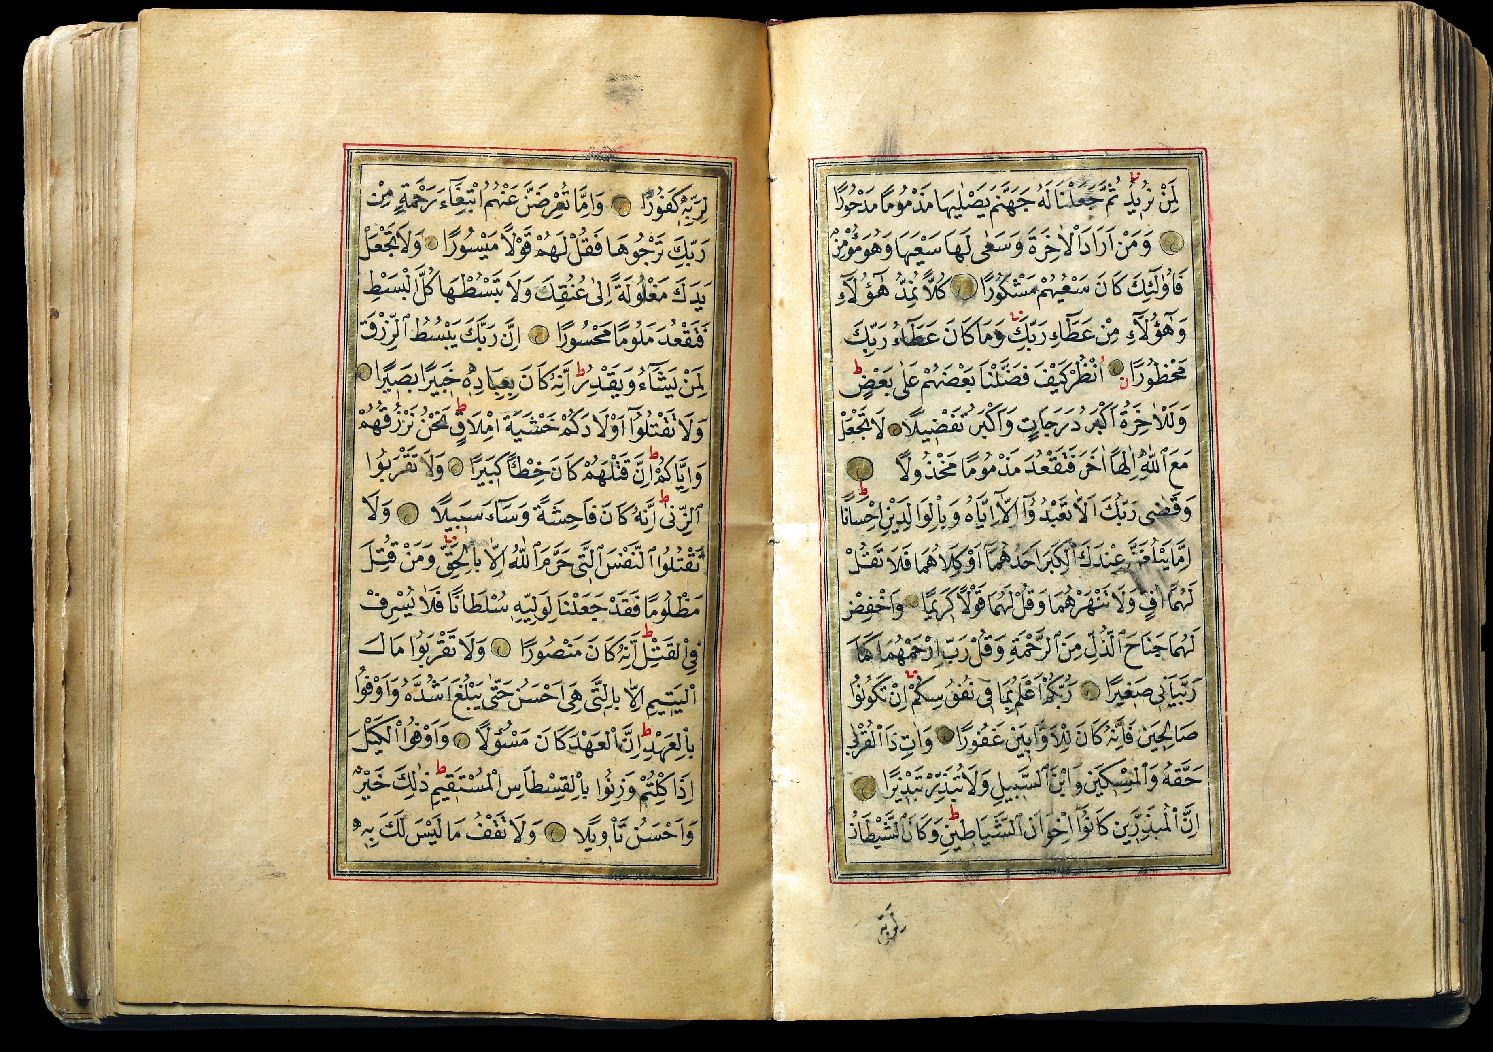 لِمَنْ نُرِيدُ ثُمَّ جَعَلْنَا لَهُ جَهَنَّمَ يَصْلٰيهَا مَذْمُومًا مَدْحُورًا
وَمَنْ اَرَادَ الْاٰخِرَةَ وَسَعٰى لَهَا سَعْيَهَا وَهُوَ مُؤْمِنٌ
فَاُولٰٓئِكَ كَانَ سَعْيُهُمْ مَشْكُورًا كُلًّا نُمِدُّ هٰٓؤُلَآءِ
وَهٰٓؤُلَآءِ مِنْ عَطَآءِ رَبِّكَ وَمَا كَانَ عَطَآءُ رَبِّكَ
مَحْظُورًا اُنْظُرْ كَيْفَ فَضَّلْنَا بَعْضَهُمْ عَلٰى بَعْضٍ ط
وَلَلْاٰخِرَةُ اَكْبَرُ دَرَجَاتٍ وَاَكْبَرُ تَفْضِيلًا لَا تَجْعَلْ
مَعَ اللّٰهِ اِلٰهًا اٰخَرَ فَتَقْعُدَ مَذْمُومًا مَخْذُولًا
وَقَضٰى رَبُّكَ اَلَّا تَعْبُدُوٓا اِلَّٓا اِيَّاهُ وَبِالْوَالِدَيْنِ اِحْسَانًا ط
اِمَّا يَبْلُغَنَّ عِنْدَكَ الْكِبَرَ اَحَدُهُمَٓا اَوْ كِلَاهُمَا فَلَا تَقُلْ
لَهُمَٓا اُفٍّ وَلَا تَنْهَرْهُمَا وَقُلْ لَهُمَا قَوْلًا كَرِيمًا وَاخْفِضْ
لَهُمَا جَنَاحَ الذُّلِّ مِنَ الرَّحْمَةِ وَقُلْ رَبِّ ارْحَمْهُمَا كَمَا
رَبَّيَانِى صَغِيرًا رَبُّكُمْ اَعْلَمُ بِمَا فِى نُفُوسِكُمْ اِنْ تَكُونُوا
صَالِحِينَ فَاِنَّهُ كَانَ لِلْاَوَّابِينَ غَفُورًا وَاٰتِ ذَا الْقُرْبٰى
حَقَّهُ وَالْمِسْكِينَ وَابْنَ السَّبِيلِ وَلَا تُبَذِّرْ تَبْذِيرًا
اِنَّ الْمُبَذِّرِينَ كَانُٓوا اِخْوَانَ الشَّيَاطِينِ ط وَكَانَ الشَّيْطَانُ
لِرَبِّهِ
لِرَبِّهِ كَفُورًا وَاِمَّا تُعْرِضَنَّ عَنْهُمُ ابْتِغَٓاءَ رَحْمَةٍ مِنْ
رَبِّكَ تَرْجُوهَا فَقُلْ لَهُمْ قَوْلًا مَيْسُورًا وَلَا تَجْعَلْ
يَدَكَ مَغْلُولَةً اِلٰى عُنُقِكَ وَلَا تَبْسُطْهَا كُلَّ الْبَسْطِ
فَتَقْعُدَ مَلُومًا مَحْسُورًا اِنَّ رَبَّكَ يَبْسُطُ الرِّزْقَ
لِمَنْ يَشَٓاءُ وَيَقْدِرُ ط اِنَّهُ كَانَ بِعِبَادِهِ خَبِيرًا بَصِيرًا
وَلَا تَقْتُلُٓوا اَوْلَادَكُمْ خَشْيَةَ اِمْلَاقٍ ط نَحْنُ نَرْزُقُهُمْ
وَاِيَّاكُمْ ط اِنَّ قَتْلَهُمْ كَانَ خِطْـًٔا كَبِيرًا وَلَا تَقْرَبُوا
الزِّنٰٓى ط اِنَّهُ كَانَ فَاحِشَةً وَسَٓاءَ سَبِيلًا وَلَا
تَقْتُلُوا النَّفْسَ الَّتِى حَرَّمَ اللّٰهُ اِلَّا بِالْحَقِّ وَمَنْ قُتِلَ
مَظْلُومًا فَقَدْ جَعَلْنَا لِوَلِيِّهِ سُلْطَانًا فَلَا يُسْرِفْ
فِى الْقَتْلِ ط اِنَّهُ كَانَ مَنْصُورًا وَلَا تَقْرَبُوا مَالَ
الْيَتِيمِ اِلَّا بِالَّتِى هِىَ اَحْسَنُ حَتّٰى يَبْلُغَ اَشُدَّهُ وَاَوْفُوا
بِالْعَهْدِ ط اِنَّ الْعَهْدَ كَانَ مَسْؤُلًا وَاَوْفُوا الْكَيْلَ
اِذَا كِلْتُمْ وَزِنُوا بِالْقِسْطَاسِ الْمُسْتَقِيمِ ط ذٰلِكَ خَيْرٌ
وَاَحْسَنُ تَاْوِيلًا وَلَا تَقْفُ مَا لَيْسَ لَكَ بِهِ